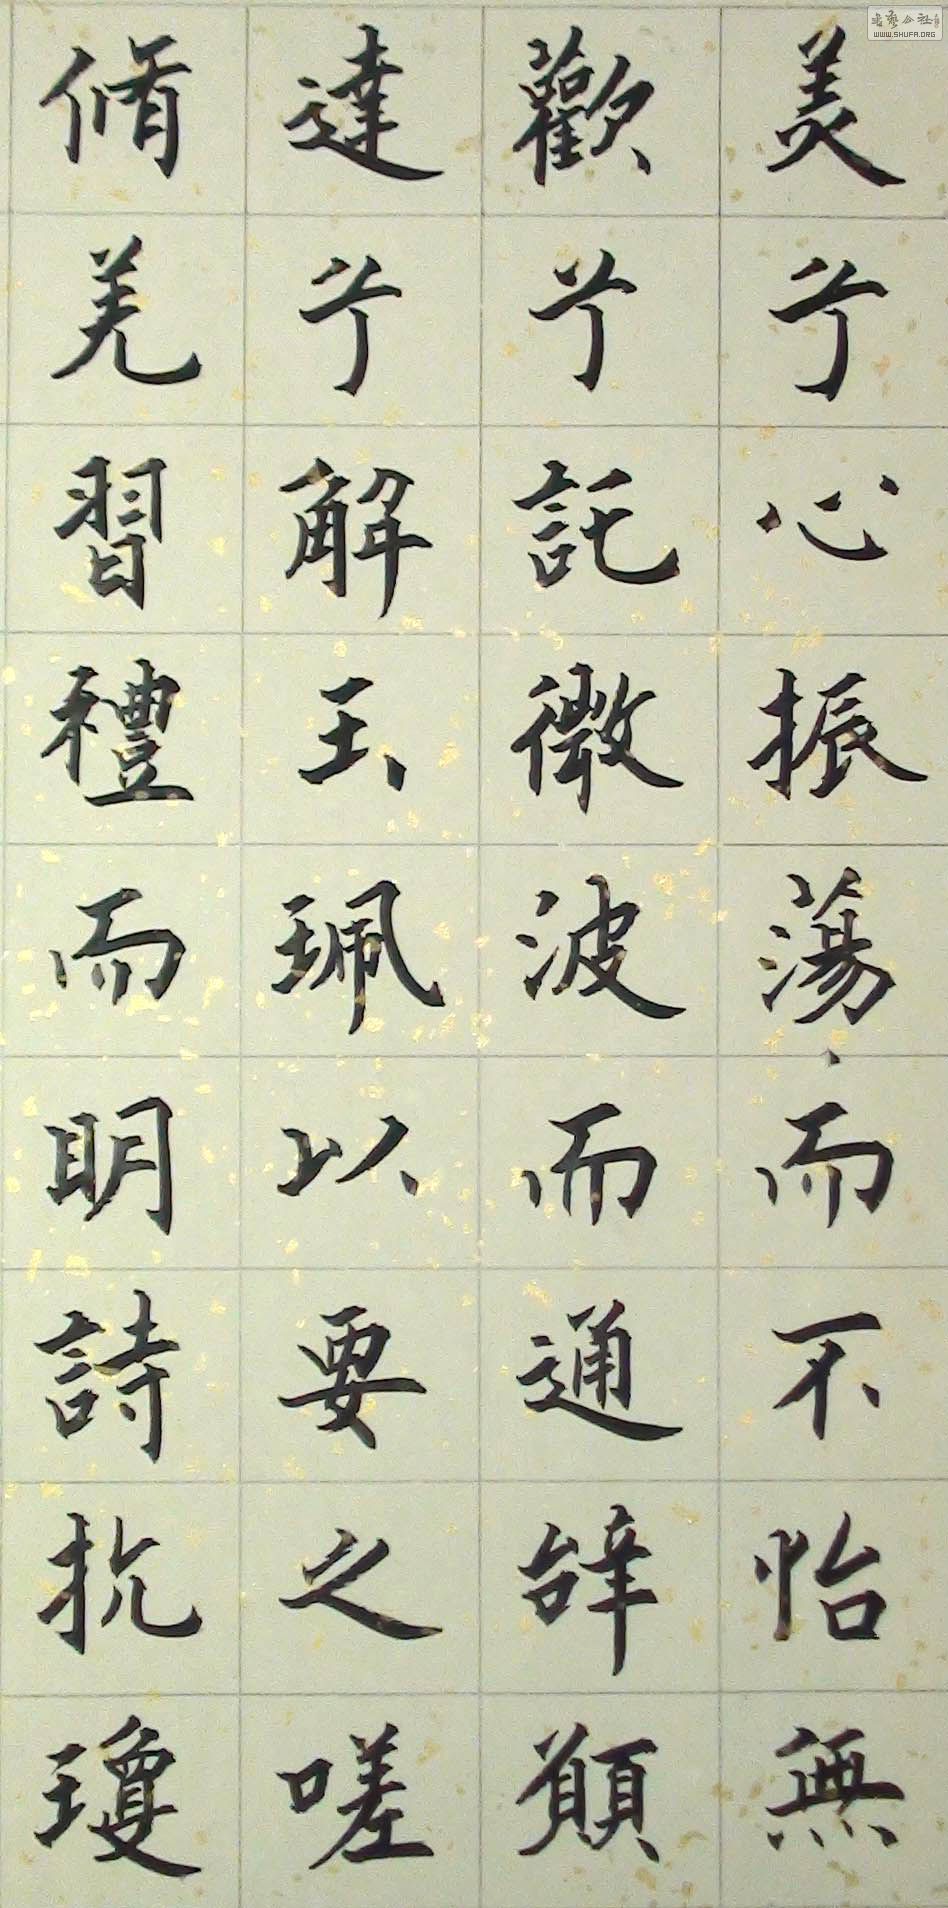 美兮心振蕩而不怡無
歡兮託微波而通辝願
達兮解玉珮以要之嗟
脩羌習禮而明詩抗瓊
WWW.SHUFA.ORG